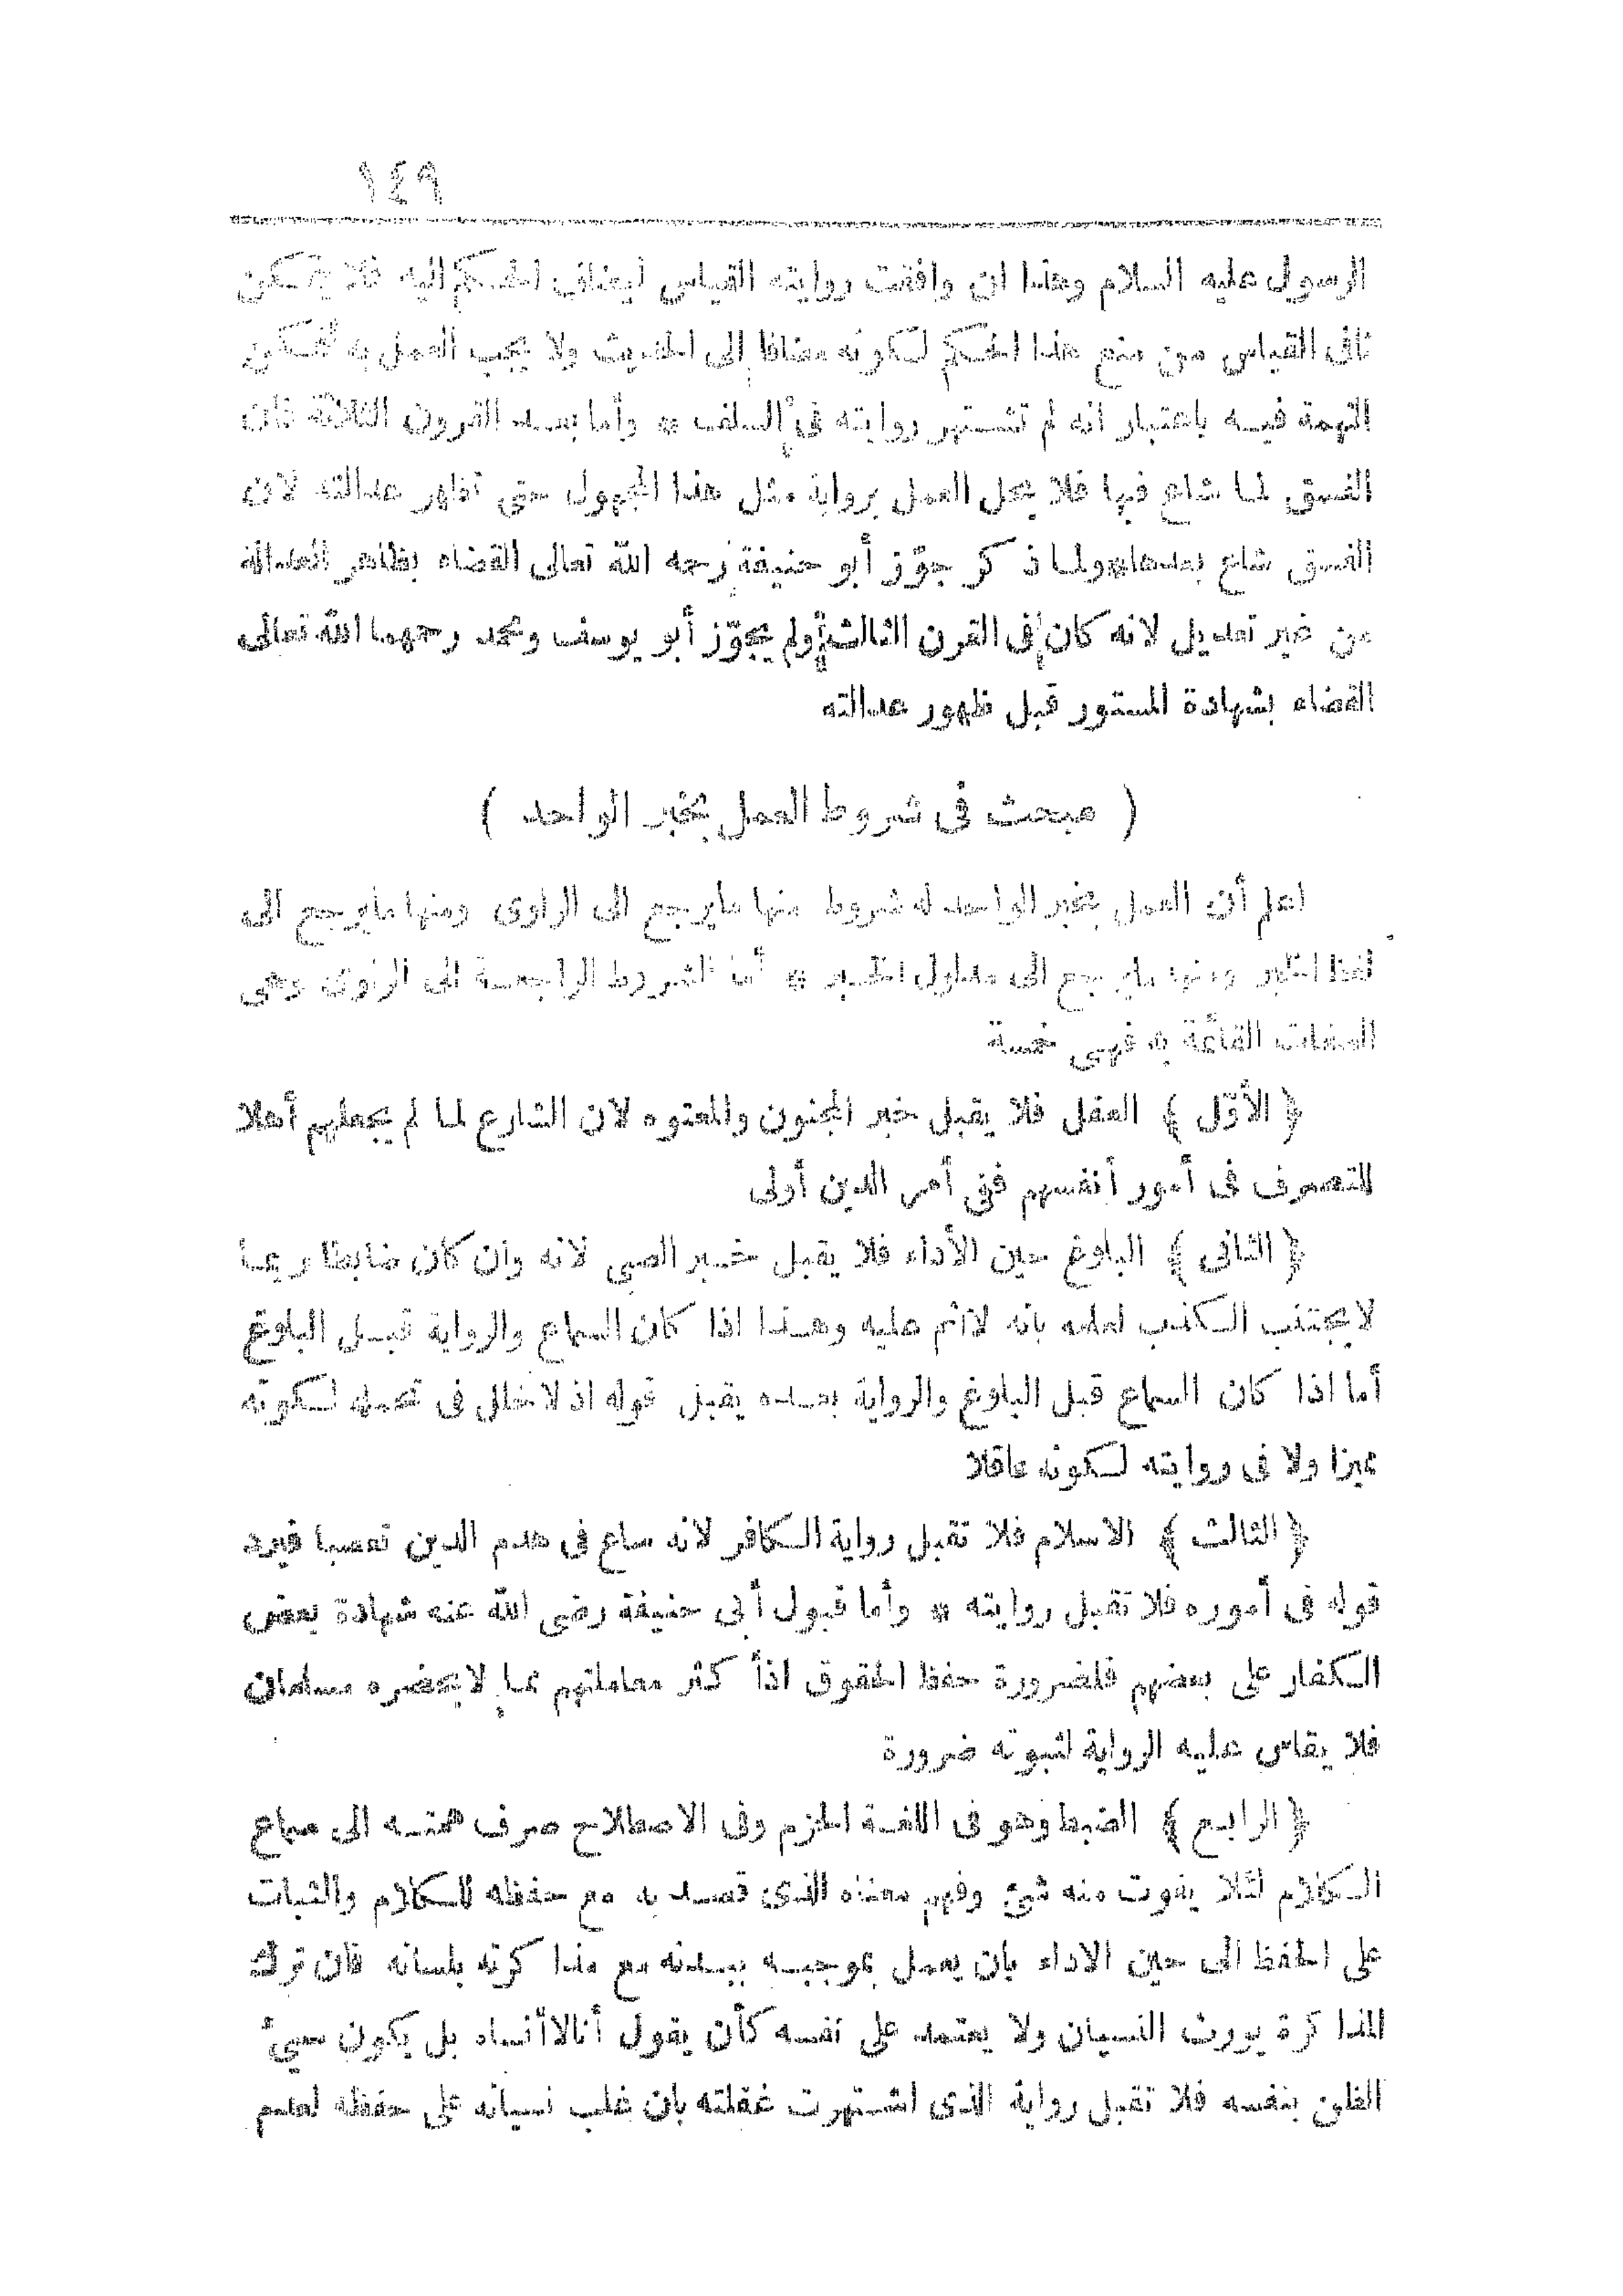 ١٤٩
الرسول عليه السلام وهذا ان وافقت روايته القياس ليضاف الحكم اليه فلا يتمكن
نافى القياس من منع هذا الحكم لكونه مضافا إلى الحديث ولا يجب العمل به لتمكن
التهمة فيه باعتبار انه لم تشتهر روايته فى السلف * وأما بعد القرون الثلاثة فان
الفسق لما شاع فيها فلا يحل العمل برواية مثل هذا المجهول حتى تظهر عدالته لان
الفسق شاع بعدها* ولما ذكر جوّز أبو حنيفة رحمه الله تعالى القضاء بظاهر العدالة
من غير تعديل لانه كان فى القرن الثالث ولم يجوّز أبو يوسف ومحمد رحمهما الله تعالى
القضاء بشهادة المستور قبل ظهور عدالته
( مبحث فى شروط العمل بخبر الواحد )
اعلم أن العمل بخبر الواحد له شروط منها مايرجع الى الراوى ومنها مايرجع الى
لفظ الخبر ومنها مايرجع الى مدلول الخبر * أما الشروط الراجعة الى الراوى وهى
الصفات القائمة به فهى خمسة
﴿ الأوّل ﴾ العقل فلا يقبل خبر المجنون والمعتوه لان الشارع لما لم يجعلهم أهلا
للتصرف فى أمور أنفسهم ففى أمر الدين أولى
﴿ الثانى ﴾ البلوغ حين الأداء فلا يقبل خبر الصبى لانه وان كان ضابطا ربما
لا يجتنب الكذب لعلمه بانه لا اثم عليه وهذا اذا كان السماع والرواية قبل البلوغ
أما اذا كان السماع قبل البلوغ والرواية بعده يقبل قوله اذ لا خلل فى تحمله لكونه
مميزا ولا فى روايته لكونه عاقلا
﴿ الثالث ﴾ الاسلام فلا تقبل رواية الكافر لانه ساع فى هدم الدين تعصبا فيرد
قوله فى أموره فلا تقبل روايته * وأما قبول أبى حنيفة رضى الله عنه شهادة بعض
الكفار على بعضهم فلضرورة حفظ الحقوق اذ أكثر معاملتهم مما لا يحضره مسلمان
فلا يقاس عليه الرواية لثبوته ضرورة
﴿ الرابع ﴾ الضبط وهو فى اللغة الحزم وفى الاصطلاح صرف همته الى سماع
الكلام لئلا يفوت منه شئ وفهم معناه الذى قصد به مع حفظه للكلام والثبات
على الحفظ الى حين الاداء بان يعمل بموجبه ببدنه مع مذاكرته بلسانه فان ترك
المذاكرة يورث النسيان ولا يعتمد على نفسه كأن يقول أنا لا أنساه بل يكون سيئ
الظن بنفسه فلا تقبل رواية الذى اشتهرت غفلته بان غلب نسيانه على حفظه لعدم